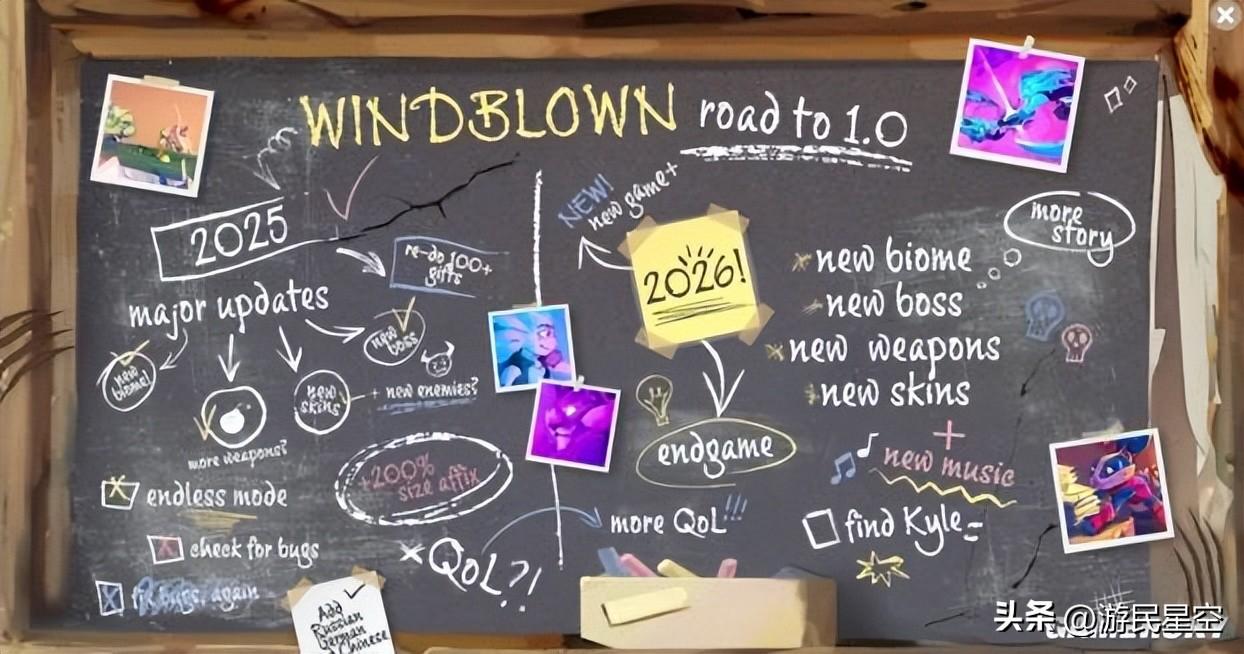 WINDBLOWN road to 1.0
2025
re-do 100+
gifts
major updates
new
biome!
more weapons?
new
skins
new
boss
+ new enemies?
endless mode
+200%
size affix
check for bugs
fix bugs, again
QoL?!
Add
Russian
German
Chinese
NEW!
new game+
2026!
endgame
more QoL!!!
more
story
new biome
new boss
new weapons
new skins
+
new music
find Kyle
头条 @游民星空